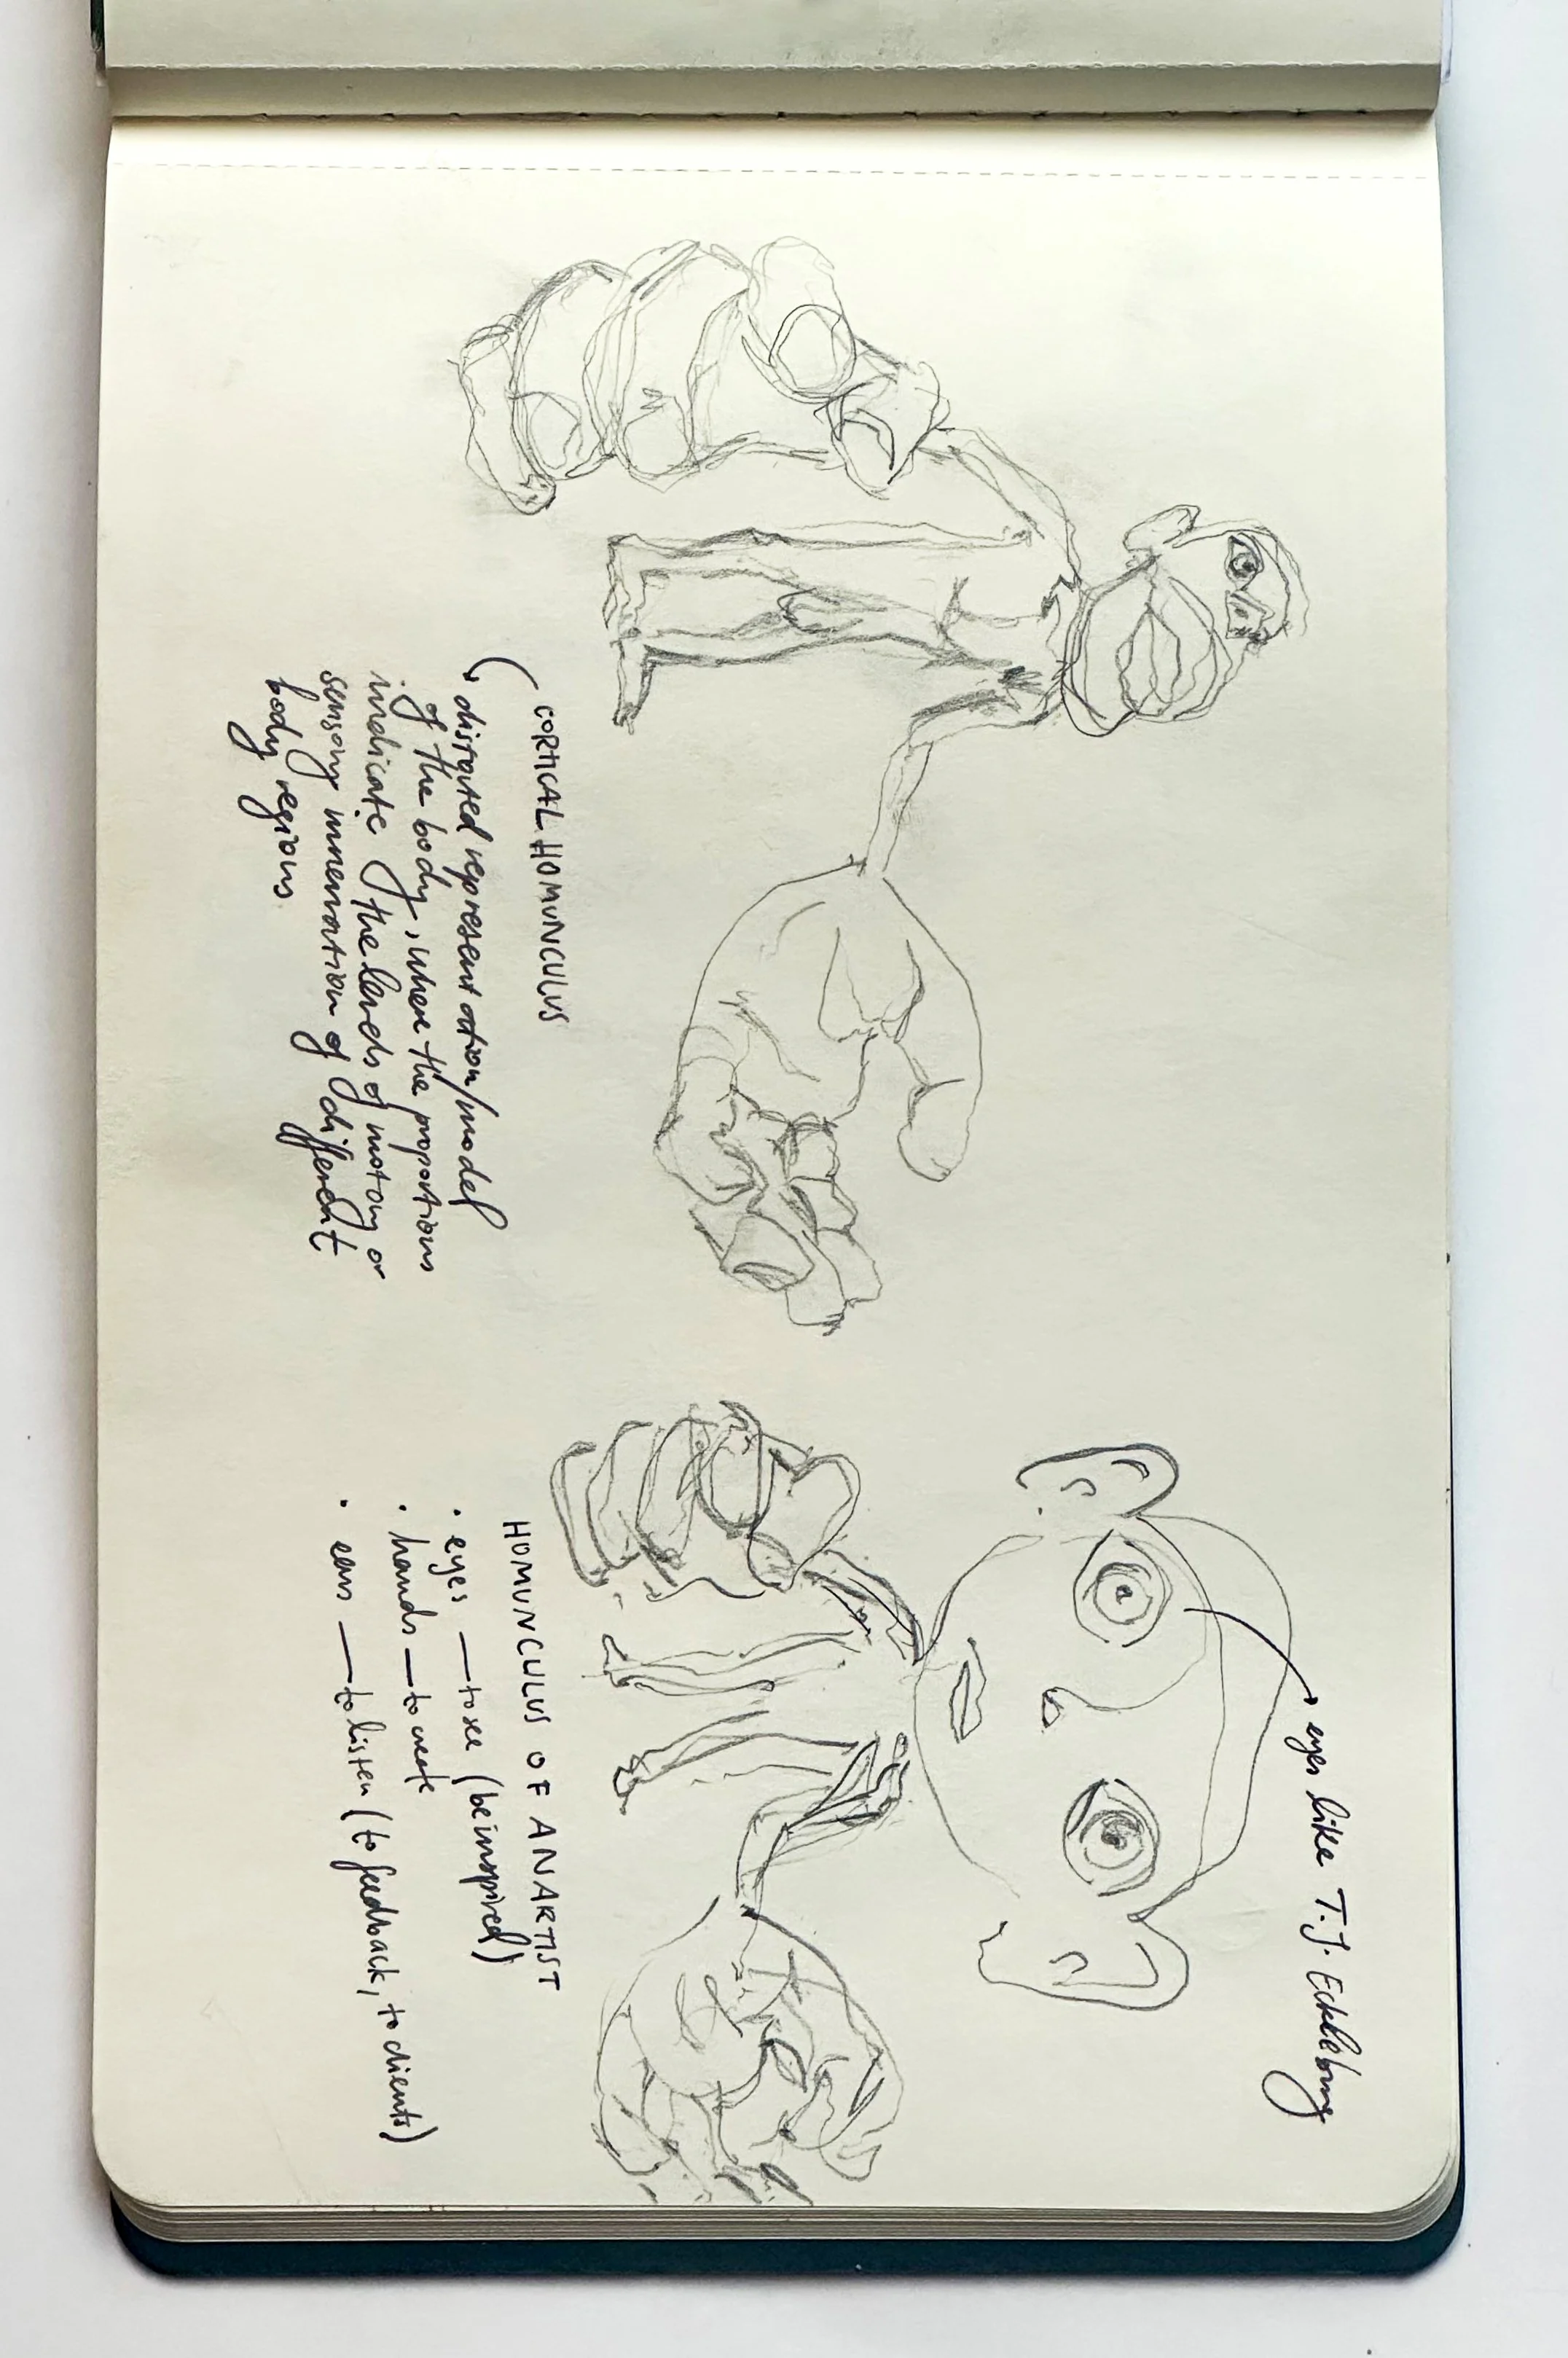 CORTICAL HOMUNCULUS
distorted representation/model
of the body, where the proportions
indicate the levels of motory or
sensory innervation of different
body regions.
eyes like T.J. Eckleburg
HOMUNCULUS OF AN ARTIST
• eyes — to see (be inspired)
• hands — to create
• ears — to listen (to feedback, to clients)